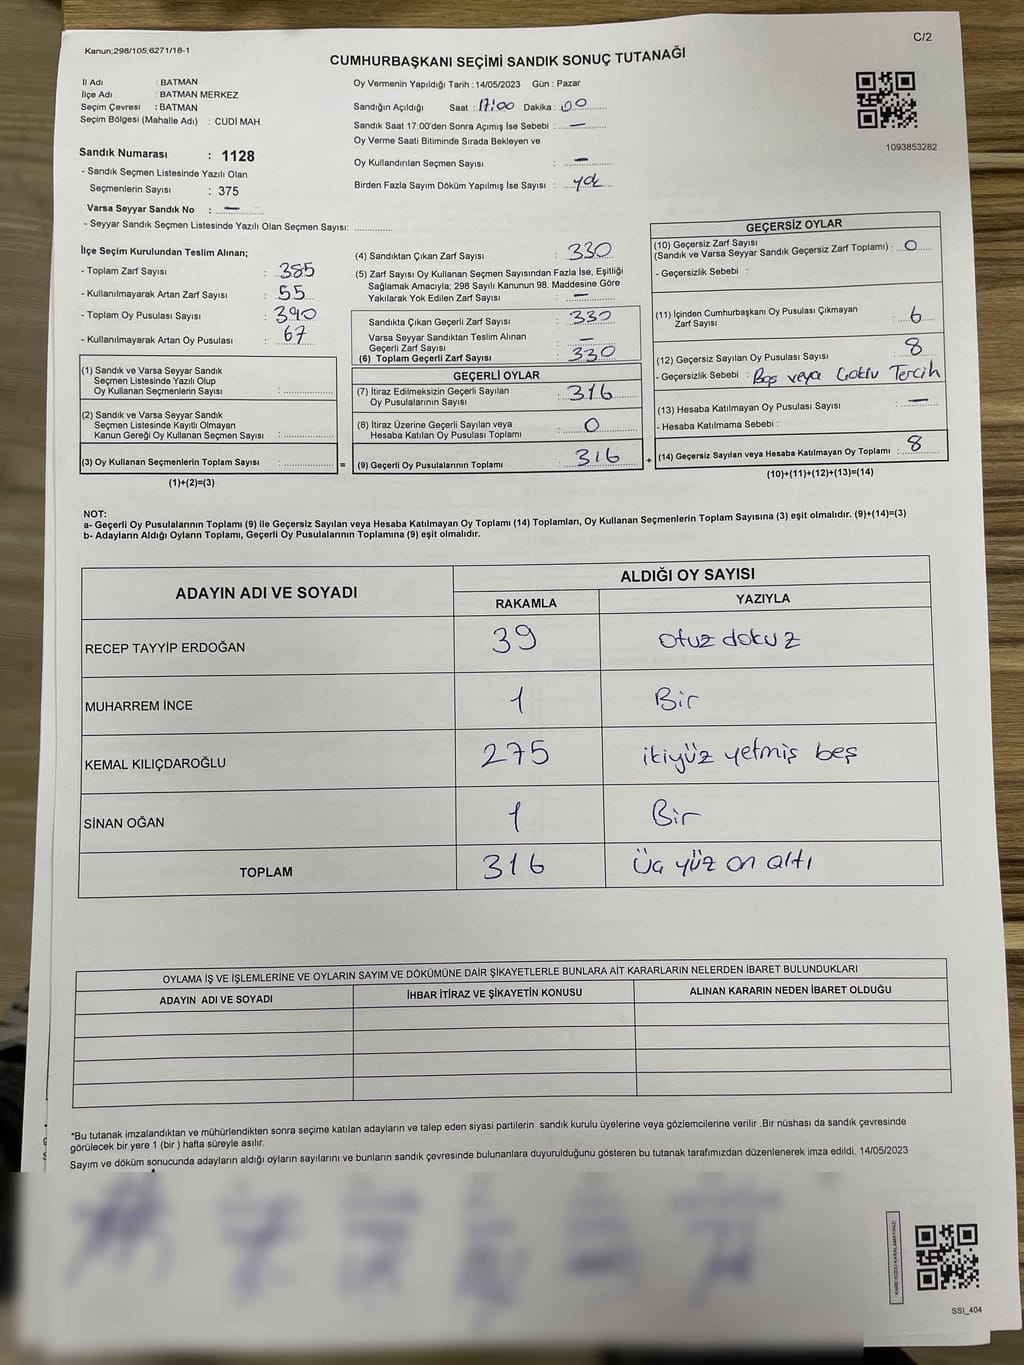 Kanun;298/105;6271/18-1
C/2
CUMHURBAŞKANI SEÇİMİ SANDIK SONUÇ TUTANAĞI
İl Adı : BATMAN
İlçe Adı : BATMAN MERKEZ
Seçim Çevresi : BATMAN
Seçim Bölgesi (Mahalle Adı) : CUDİ MAH.
Sandık Numarası : 1128
- Sandık Seçmen Listesinde Yazılı Olan
Seçmenlerin Sayısı : 375
Varsa Seyyar Sandık No : —
- Seyyar Sandık Seçmen Listesinde Yazılı Olan Seçmen Sayısı: ..............
Oy Vermenin Yapıldığı Tarih : 14/05/2023 Gün : Pazar
Sandığın Açıldığı Saat : 17:00 Dakika : 00
Sandık Saat 17:00'den Sonra Açımış İse Sebebi : —
Oy Verme Saati Bitiminde Sırada Bekleyen ve
Oy Kullandırılan Seçmen Sayısı : —
Birden Fazla Sayım Döküm Yapılmış İse Sayısı : yok
1093853282
İlçe Seçim Kurulundan Teslim Alınan;
- Toplam Zarf Sayısı : 385
- Kullanılmayarak Artan Zarf Sayısı : 55
- Toplam Oy Pusulası Sayısı : 390
- Kullanılmayarak Artan Oy Pusulası : 67
(1) Sandık ve Varsa Seyyar Sandık
Seçmen Listesinde Yazılı Olup
Oy Kullanan Seçmenlerin Sayısı : ..............
(2) Sandık ve Varsa Seyyar Sandık
Seçmen Listesinde Kayıtlı Olmayan
Kanun Gereği Oy Kullanan Seçmen Sayısı : ..............
(3) Oy Kullanan Seçmenlerin Toplam Sayısı : .............. =
(1)+(2)=(3)
(4) Sandıktan Çıkan Zarf Sayısı : 330
(5) Zarf Sayısı Oy Kullanan Seçmen Sayısından Fazla İse, Eşitliği
Sağlamak Amacıyla; 298 Sayılı Kanunun 98. Maddesine Göre
Yakılarak Yok Edilen Zarf Sayısı : —
Sandıkta Çıkan Geçerli Zarf Sayısı : 330
Varsa Seyyar Sandıktan Teslim Alınan
Geçerli Zarf Sayısı : —
(6) Toplam Geçerli Zarf Sayısı : 330
GEÇERLİ OYLAR
(7) İtiraz Edilmeksizin Geçerli Sayılan
Oy Pusulalarının Sayısı : 316
(8) İtiraz Üzerine Geçerli Sayılan veya
Hesaba Katılan Oy Pusulası Toplamı : 0
(9) Geçerli Oy Pusulalarının Toplamı : 316 +
GEÇERSİZ OYLAR
(10) Geçersiz Zarf Sayısı
(Sandık ve Varsa Seyyar Sandık Geçersiz Zarf Toplamı) : 0
- Geçersizlik Sebebi :
(11) İçinden Cumhurbaşkanı Oy Pusulası Çıkmayan
Zarf Sayısı : 6
(12) Geçersiz Sayılan Oy Pusulası Sayısı : 8
- Geçersizlik Sebebi : Boş veya Çoklu Tercih
(13) Hesaba Katılmayan Oy Pusulası Sayısı : —
- Hesaba Katılmama Sebebi :
(14) Geçersiz Sayılan veya Hesaba Katılmayan Oy Toplamı : 8
(10)+(11)+(12)+(13)=(14)
NOT:
a- Geçerli Oy Pusulalarının Toplamı (9) ile Geçersiz Sayılan veya Hesaba Katılmayan Oy Toplamı (14) Toplamları, Oy Kullanan Seçmenlerin Toplam Sayısına (3) eşit olmalıdır. (9)+(14)=(3)
b- Adayların Aldığı Oyların Toplamı, Geçerli Oy Pusulalarının Toplamına (9) eşit olmalıdır.
ADAYIN ADI VE SOYADI
ALDIĞI OY SAYISI
RAKAMLA YAZIYLA
RECEP TAYYİP ERDOĞAN 39 otuz dokuz
MUHARREM İNCE 1 Bir
KEMAL KILIÇDAROĞLU 275 ikiyüz yetmiş beş
SİNAN OĞAN 1 Bir
TOPLAM 316 Üç yüz on altı
OYLAMA İŞ VE İŞLEMLERİNE VE OYLARIN SAYIM VE DÖKÜMÜNE DAİR ŞİKAYETLERLE BUNLARA AİT KARARLARIN NELERDEN İBARET BULUNDUKLARI
ADAYIN ADI VE SOYADI İHBAR İTİRAZ VE ŞİKAYETİN KONUSU ALINAN KARARIN NEDEN İBARET OLDUĞU
*Bu tutanak imzalandıktan ve mühürlendikten sonra seçime katılan adayların ve talep eden siyasi partilerin sandık kurulu üyelerine veya gözlemcilerine verilir .Bir nüshası da sandık çevresinde
görülecek bir yere 1 (bir ) hafta süreyle asılır.
Sayım ve döküm sonucunda adayların aldığı oyların sayılarını ve bunların sandık çevresinde bulunanlara duyurulduğunu gösteren bu tutanak tarafımızdan düzenlenerek imza edildi. 14/05/2023
KARE KODU KARALAMAYINIZ!
SSI_404